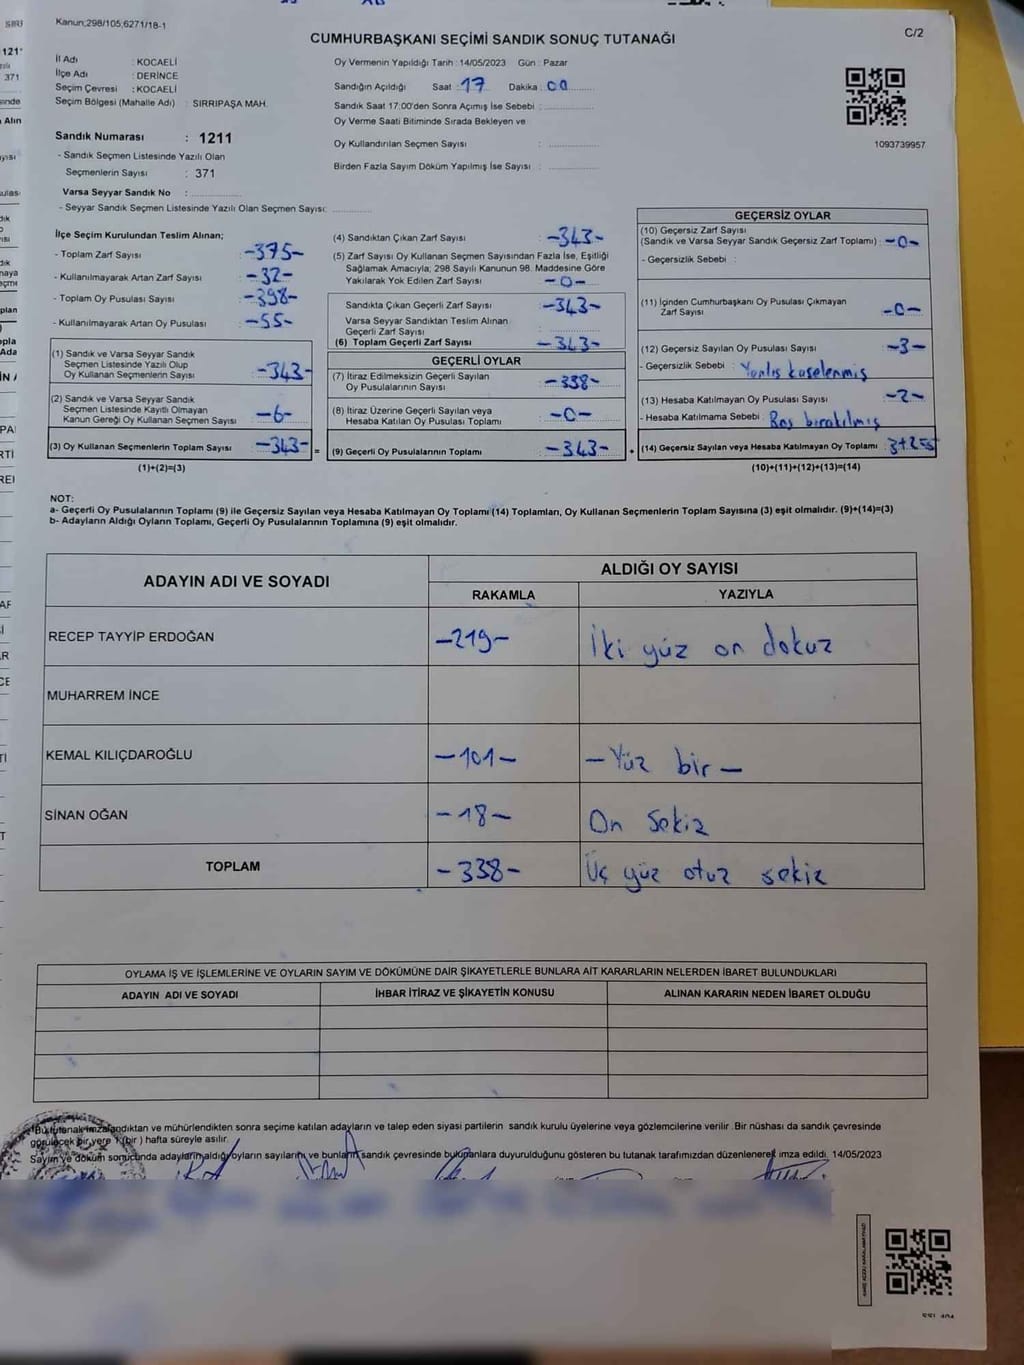 Kanun;298/105;6271/18-1
C/2
CUMHURBAŞKANI SEÇİMİ SANDIK SONUÇ TUTANAĞI
İl Adı : KOCAELİ
İlçe Adı : DERİNCE
Seçim Çevresi : KOCAELİ
Seçim Bölgesi (Mahalle Adı) : SIRRIPAŞA MAH.
Sandık Numarası : 1211
- Sandık Seçmen Listesinde Yazılı Olan
Seçmenlerin Sayısı : 371
Varsa Seyyar Sandık No :
- Seyyar Sandık Seçmen Listesinde Yazılı Olan Seçmen Sayısı:
Oy Vermenin Yapıldığı Tarih : 14/05/2023 Gün : Pazar
Sandığın Açıldığı Saat : 17 Dakika : 00
Sandık Saat 17:00'den Sonra Açımış İse Sebebi :
Oy Verme Saati Bitiminde Sırada Bekleyen ve
Oy Kullandırılan Seçmen Sayısı :
Birden Fazla Sayım Döküm Yapılmış İse Sayısı :
1093739957
İlçe Seçim Kurulundan Teslim Alınan;
- Toplam Zarf Sayısı : -375-
- Kullanılmayarak Artan Zarf Sayısı : -32-
- Toplam Oy Pusulası Sayısı : -398-
- Kullanılmayarak Artan Oy Pusulası : -55-
(1) Sandık ve Varsa Seyyar Sandık
Seçmen Listesinde Yazılı Olup
Oy Kullanan Seçmenlerin Sayısı : -343-
(2) Sandık ve Varsa Seyyar Sandık
Seçmen Listesinde Kayıtlı Olmayan
Kanun Gereği Oy Kullanan Seçmen Sayısı : -6-
(3) Oy Kullanan Seçmenlerin Toplam Sayısı : -343-
(1)+(2)=(3)
(4) Sandıktan Çıkan Zarf Sayısı : -343-
(5) Zarf Sayısı Oy Kullanan Seçmen Sayısından Fazla İse, Eşitliği
Sağlamak Amacıyla; 298 Sayılı Kanunun 98. Maddesine Göre
Yakılarak Yok Edilen Zarf Sayısı : -0-
Sandıkta Çıkan Geçerli Zarf Sayısı : -343-
Varsa Seyyar Sandıktan Teslim Alınan
Geçerli Zarf Sayısı :
(6) Toplam Geçerli Zarf Sayısı : -343-
GEÇERLİ OYLAR
(7) İtiraz Edilmeksizin Geçerli Sayılan
Oy Pusulalarının Sayısı : -338-
(8) İtiraz Üzerine Geçerli Sayılan veya
Hesaba Katılan Oy Pusulası Toplamı : -0-
= (9) Geçerli Oy Pusulalarının Toplamı : -343- +
GEÇERSİZ OYLAR
(10) Geçersiz Zarf Sayısı
(Sandık ve Varsa Seyyar Sandık Geçersiz Zarf Toplamı) : -0-
- Geçersizlik Sebebi :
(11) İçinden Cumhurbaşkanı Oy Pusulası Çıkmayan
Zarf Sayısı : -0-
(12) Geçersiz Sayılan Oy Pusulası Sayısı : -3-
- Geçersizlik Sebebi : Yanlış kaşelenmiş
(13) Hesaba Katılmayan Oy Pusulası Sayısı : -2-
- Hesaba Katılmama Sebebi : Boş bırakılmış
(14) Geçersiz Sayılan veya Hesaba Katılmayan Oy Toplamı : 3+2=5
(10)+(11)+(12)+(13)=(14)
NOT:
a- Geçerli Oy Pusulalarının Toplamı (9) ile Geçersiz Sayılan veya Hesaba Katılmayan Oy Toplamı (14) Toplamları, Oy Kullanan Seçmenlerin Toplam Sayısına (3) eşit olmalıdır. (9)+(14)=(3)
b- Adayların Aldığı Oyların Toplamı, Geçerli Oy Pusulalarının Toplamına (9) eşit olmalıdır.
ADAYIN ADI VE SOYADI
ALDIĞI OY SAYISI
RAKAMLA YAZIYLA
RECEP TAYYİP ERDOĞAN -219- İki yüz on dokuz
MUHARREM İNCE
KEMAL KILIÇDAROĞLU -101- -Yüz bir-
SİNAN OĞAN -18- On sekiz
TOPLAM -338- Üç yüz otuz sekiz
OYLAMA İŞ VE İŞLEMLERİNE VE OYLARIN SAYIM VE DÖKÜMÜNE DAİR ŞİKAYETLERLE BUNLARA AİT KARARLARIN NELERDEN İBARET BULUNDUKLARI
ADAYIN ADI VE SOYADI İHBAR İTİRAZ VE ŞİKAYETİN KONUSU ALINAN KARARIN NEDEN İBARET OLDUĞU
Bu tutanak imzalandıktan ve mühürlendikten sonra seçime katılan adayların ve talep eden siyasi partilerin sandık kurulu üyelerine veya gözlemcilerine verilir. Bir nüshası da sandık çevresinde
görülecek bir yere 1 (bir ) hafta süreyle asılır.
Sayım ve döküm sonucunda adayların aldığı oyların sayılarını ve bunların sandık çevresinde bulunanlara duyurulduğunu gösteren bu tutanak tarafımızdan düzenlenerek imza edildi. 14/05/2023